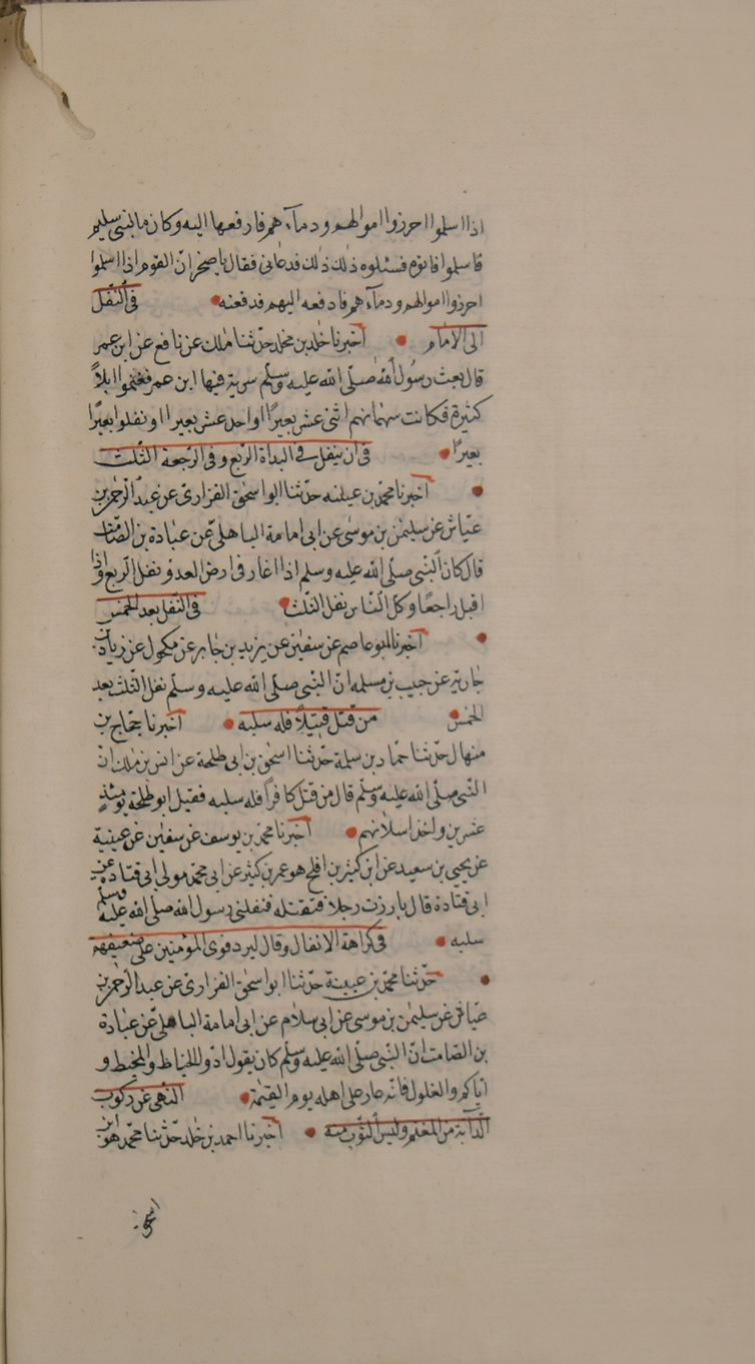 اذا اسلموا احرزوا اموالهم ودمآءهم فادفعها اليه وكان ما لبنى سليم
فاسلموا فاتوه فسئلوه ذلك ذلك فدعانى فقال يا صخر ان القوم اذا اسلموا
احرزوا اموالهم ودمآءهم فادفعه اليهم فدفعته فى ان النفل
الى الامام اخبرنا خلد بن مخلد حدّثنا ملك عن نافع عن ابن عمر
قال بعث رسول الله صلّى الله عليه وسلّم سرية فيها ابن عمر فغنموا ابلاً
كثيرة فكانت سهمانهم اثنى عشر بعيرًا او احد عشر بعيرا ونفلوا بعيرًا
بعيرًا فى ان ينفل فى البدأة الربع وفى الرجعة الثلث
اخبرنا محمد بن عيينه حدّثنا ابو اسحق الفزارى عن عبد الرحمن بن
عيّاش عن سليمن بن موسى عن ابى امامة الباهلى عن عبادة بن الصّامت
قال كان النبى صلى الله عليه وسلم اذا اغار فى ارض العدو نفل الربع واذا
اقبل راجعًا وكلّ النّاس نفل الثلث فى النفل بعد الخمس
اخبرنا ابو عاصم عن سفين عن يزيد بن جابر عن مكحول عن زياد بن
جارية عن حبيب بن مسلمه انّ النّبى صلى الله عليه وسلّم نفل الثلث بعد
الخمس من قتل قتيلاً فله سلبه اخبرنا حجّاج بن
منهال حدّثنا حمّاد بن سلمة حدّثنا اسحق بن ابى طلحة عن انس بن ملك انّ
النّبى صلّى الله عليه وسلّم قال من قتل كافرًا فله سلبه فقتل ابو طلحة يومئذٍ
عشرين واخذ اسلابهم اخبرنا محمّد بن يوسف عن سفين عن عيينة
عن يحيى بن سعيد عن ابن كثير بن افلح هو عمر بن كثير عن ابى محمّد مولى ابى قتادة عن
ابى قتادة قال بارزت رجلاً فقتلته فنفلنى رسول الله صلى الله عليه وسلم
سلبه فى كراهة الانفال وقال ليرد قوى المؤمنين على ضعيفهم
حدّثنا محمّد بن عيينة حدّثنا ابو اسحق الفزارى عن عبد الرّحمن بن
عيّاش عن سليمن بن موسى عن ابى سلام عن ابى امامة الباهلى عن عبادة
بن الصّامت انّ النّبى صلّى الله عليه وسلّم كان يقول ادّوا الخياط والمخيط و
ايّاكم والغلول فانّه عار على اهله يوم القيٰمة النهى عن ركوب
الدآبة من المغنم ولبس الثوب منه اخبرنا احمد بن خلد حدّثنا محمّد هو ابن
اسحق